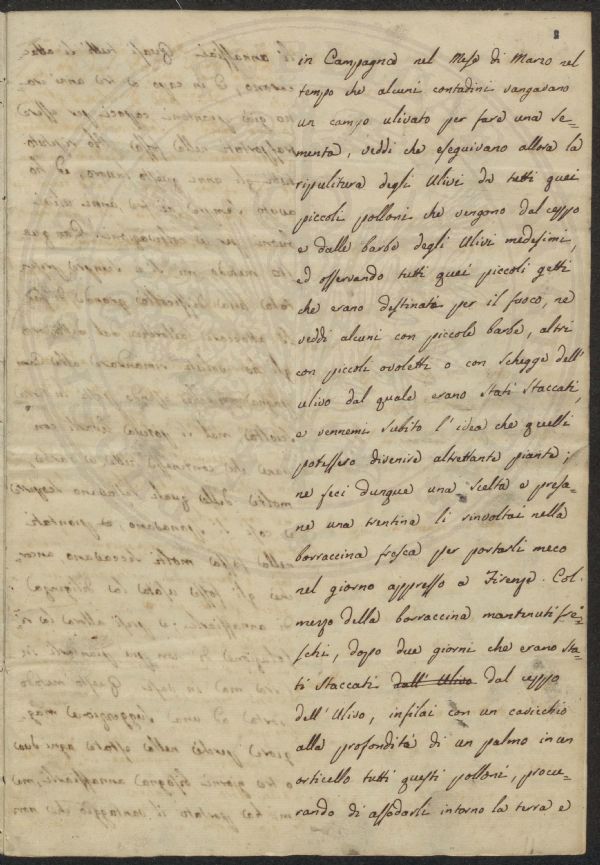 2
in Campagna nel Mese di Marzo nel
tempo che alcuni contadini vangavano
un campo ulivato per fare una se=
menta, veddi che eseguivano allora la
ripulitura degli Ulivi da tutti quei
piccoli polloni che vengono dal ceppo
e dalle barbe degli Ulivi medesimi,
ed osservando tutti quei piccoli getti
che erano destinati per il fuoco, ne
veddi alcuni con piccole barbe, altri
con piccoli ovoletti o con schegge dell'
ulivo dal quale erano stati staccati,
e vennemi subito l'idea che quelli
potessero divenire altrettante piante;
ne feci dunque una scelta e presa=
ne una trentina li rinvoltai nella
borraccina fresca per portarli meco
nel giorno appresso a Firenze. Col
mezzo della borraccina mantenuti fre=
schi, dopo due giorni che erano sta=
ti staccati dall' Ulivo dal ceppo
dell' Ulivo, infilai con un cavicchio
alla profondità di un palmo in un
orticello tutti questi polloni, procu=
rando di assodarli intorno la terra e